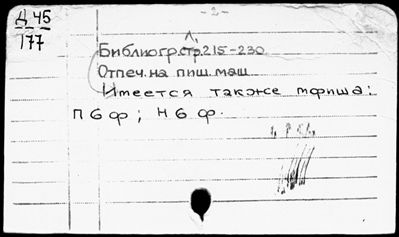 Д 45
177
- 2 -
Библиогр. стр. 215-230.
Отпеч. на пиш. маш.
Имеется также мфиша:
п6ф; н6ф.